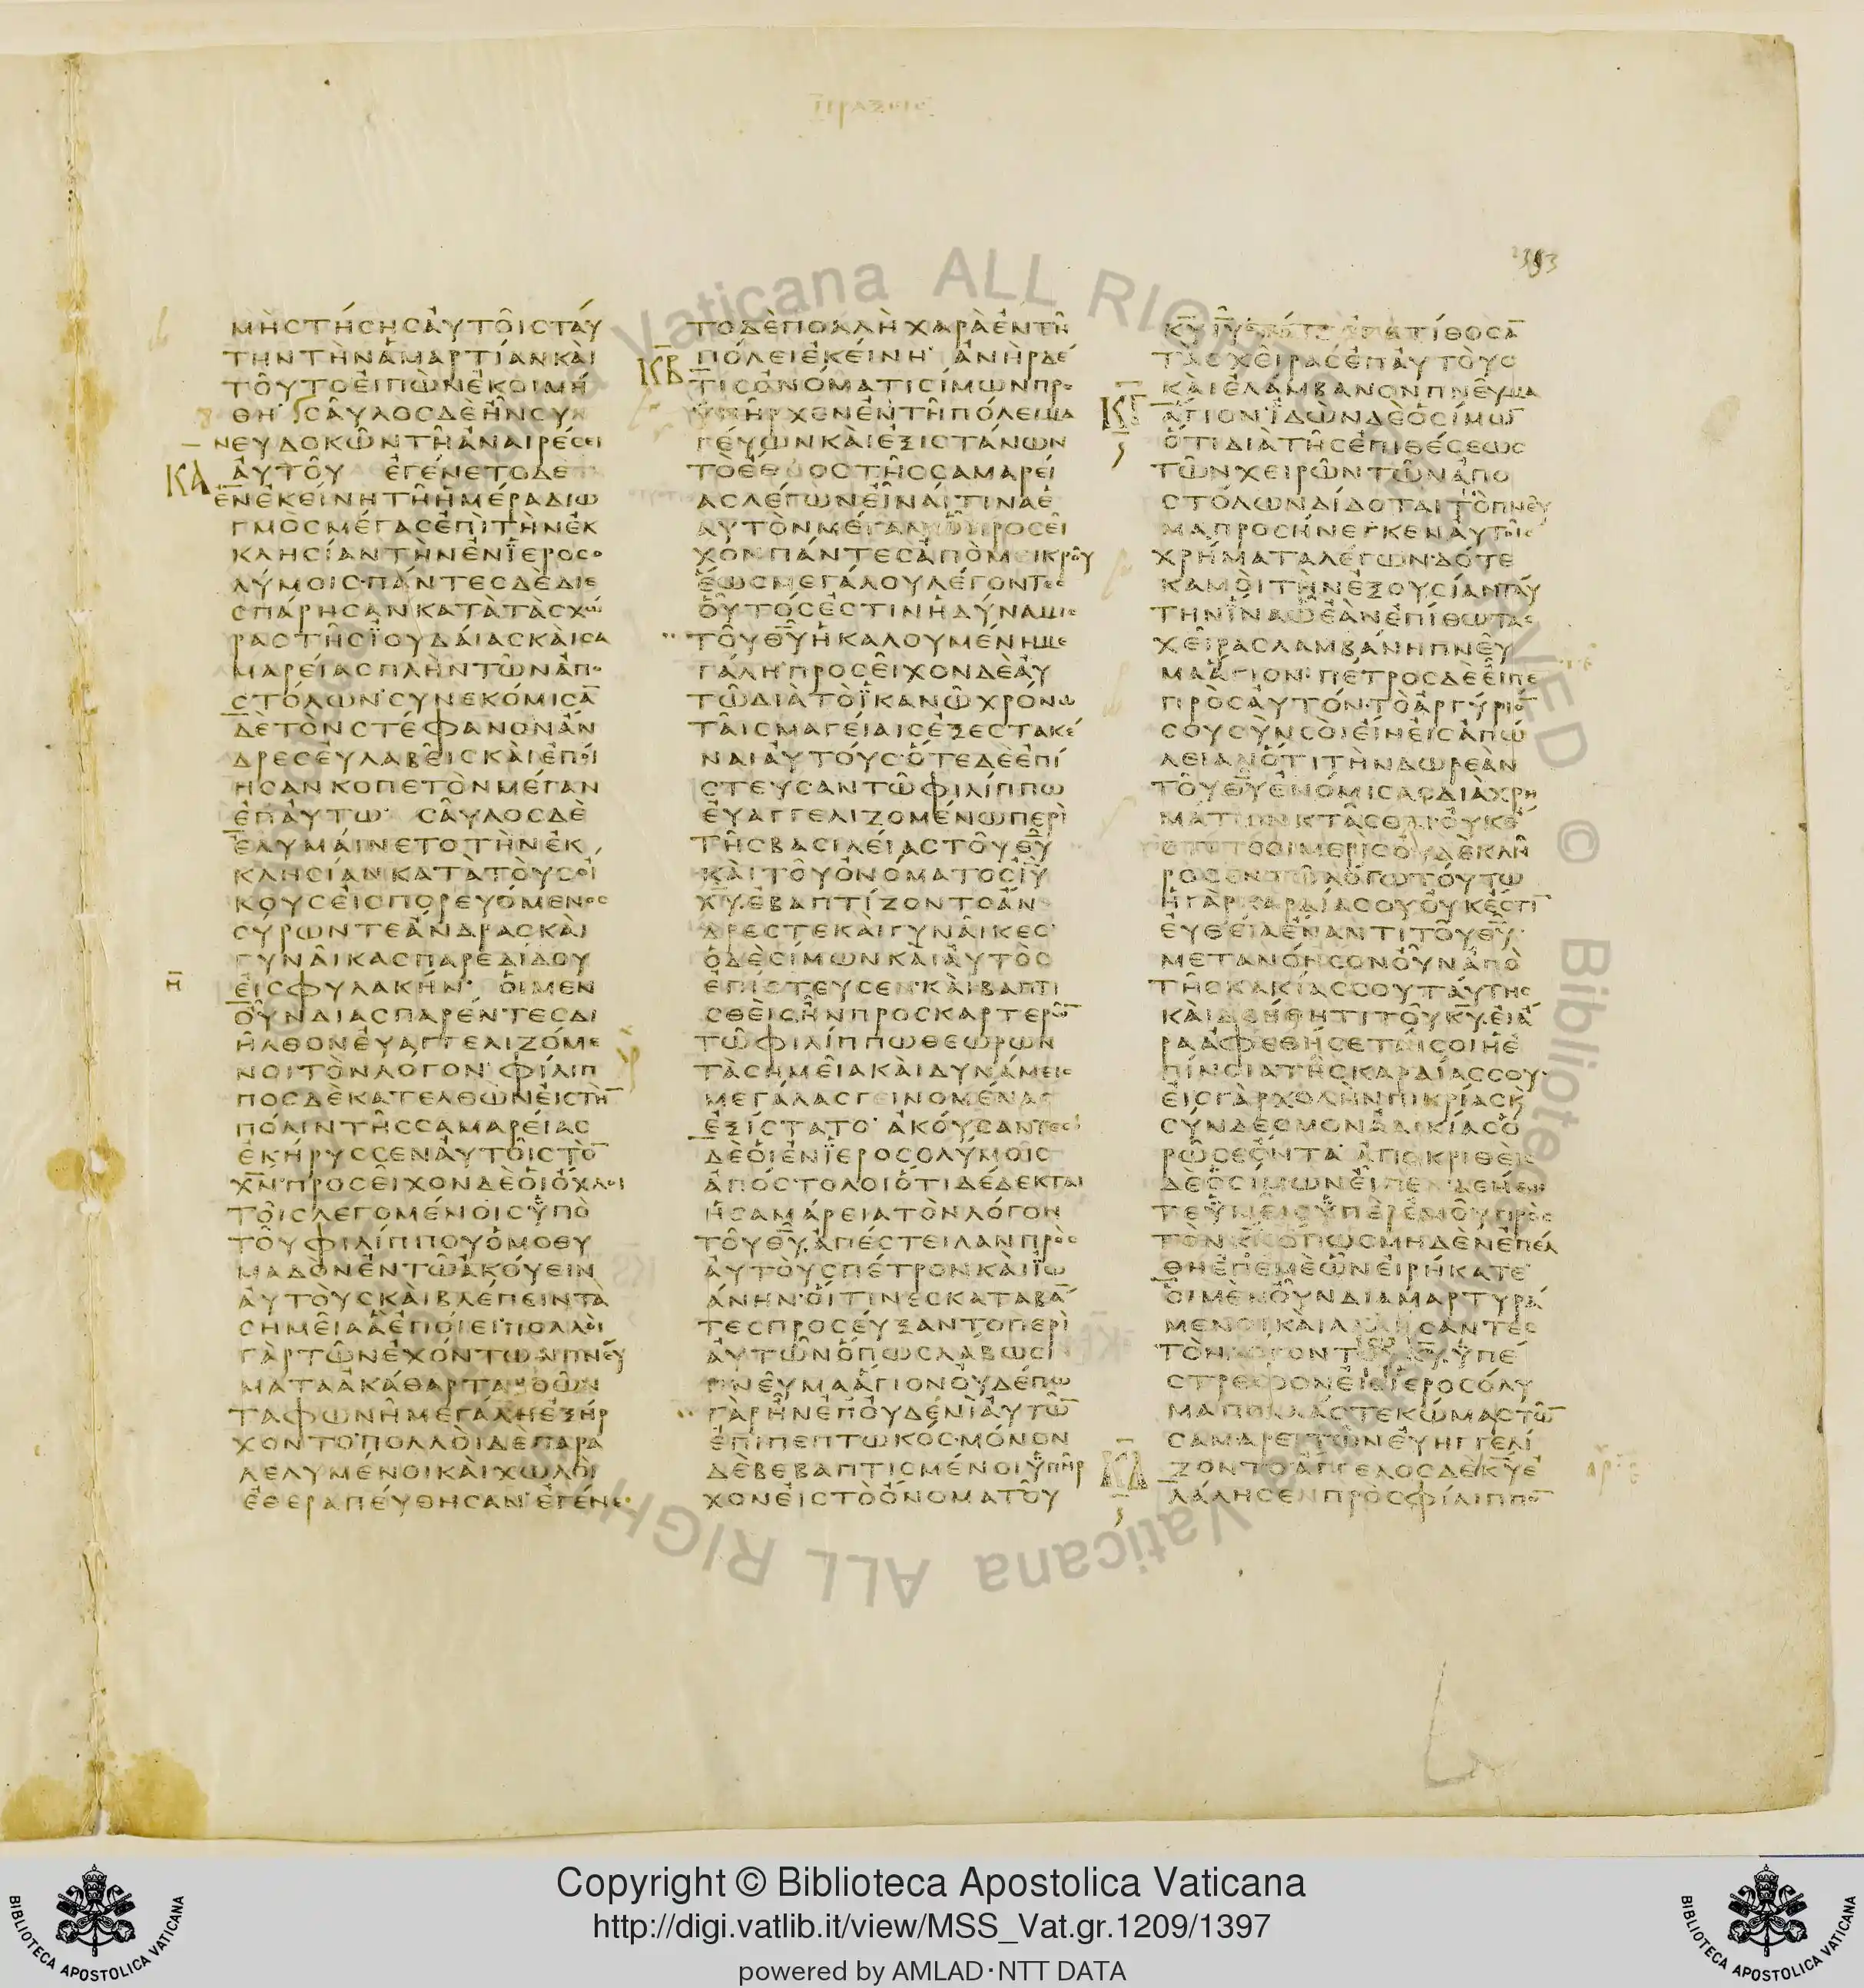 ΠΡΑΞΕΙΣ
ΜΗϹΤΗϹΗϹΑΥΤΟΙϹΤΑΥ
ΤΗΝΤΗΝΑΜΑΡΤΙΑΝΚΑΙ
ΤΟΥΤΟΕΙΠΩΝΕΚΟΙΜΗ
ΘΗ ϹΑΥΛΟϹΔΕΗΝϹΥΝ
ΝΕΥΔΟΚΩΝΤΗΑΝΑΙΡΕϹΕΙ
ΚΑ
ΑΥΤΟΥ ΕΓΕΝΕΤΟΔΕ
ΕΝΕΚΕΙΝΗΤΗΗΜΕΡΑΔΙΩ
ΓΜΟϹΜΕΓΑϹΕΠΙΤΗΝΕΚ
ΚΛΗϹΙΑΝΤΗΝΕΝΪΕΡΟϹΟ
ΛΥΜΟΙϹ·ΠΑΝΤΕϹΔΕΔΙΕ
ϹΠΑΡΗϹΑΝΚΑΤΑΤΑϹΧΩ
ΡΑϹΤΗϹΪΟΥΔΑΙΑϹΚΑΙϹΑ
ΜΑΡΕΙΑϹΠΛΗΝΤΩΝΑΠΟ
ϹΤΟΛΩΝ·ϹΥΝΕΚΟΜΙϹΑ̅
ΔΕΤΟΝϹΤΕΦΑΝΟΝΑΝ
ΔΡΕϹΕΥΛΑΒΕΙϹΚΑΙΕΠΟΙ
ΗϹΑΝΚΟΠΕΤΟΝΜΕΓΑΝ
ΕΠΑΥΤΩ· ϹΑΥΛΟϹΔΕ
ΕΛΥΜΑΙΝΕΤΟΤΗΝΕΚ
ΚΛΗϹΙΑΝΚΑΤΑΤΟΥϹΟΙ
ΚΟΥϹΕΙϹΠΟΡΕΥΟΜΕΝΟϹ
ϹΥΡΩΝΤΕΑΝΔΡΑϹΚΑΙ
ΓΥΝΑΙΚΑϹΠΑΡΕΔΙΔΟΥ
Η̅
ΕΙϹΦΥΛΑΚΗΝ· ΟΙΜΕΝ
ΟΥΝΔΙΑϹΠΑΡΕΝΤΕϹΔΙ
ΗΛΘΟΝΕΥΑΓΓΕΛΙΖΟΜΕ
ΝΟΙΤΟΝΛΟΓΟΝ· ΦΙΛΙΠ
ΠΟϹΔΕΚΑΤΕΛΘΩΝΕΙϹΤΗ̅
ΠΟΛΙΝΤΗϹϹΑΜΑΡΕΙΑϹ
ΕΚΗΡΥϹϹΕΝΑΥΤΟΙϹΤΟ̅
Χ̅Ν̅·ΠΡΟϹΕΙΧΟΝΔΕΟΙΟΧΛΟΙ
ΤΟΙϹΛΕΓΟΜΕΝΟΙϹΫΠΟ
ΤΟΥΦΙΛΙΠΠΟΥΟΜΟΘΥ
ΜΑΔΟΝΕΝΤΩΑΚΟΥΕΙΝ
ΑΥΤΟΥϹΚΑΙΒΛΕΠΕΙΝΤΑ
ϹΗΜΕΙΑΑΕΠΟΙΕΙ·ΠΟΛΛΟΙ
ΓΑΡΤΩΝΕΧΟΝΤΩΝΠΝΕΥ
ΜΑΤΑΑΚΑΘΑΡΤΑΒΟΩΝ
ΤΑΦΩΝΗΜΕΓΑΛΗΕΞΗΡ
ΧΟΝΤΟ·ΠΟΛΛΟΙΔΕΠΑΡΑ
ΛΕΛΥΜΕΝΟΙΚΑΙΧΩΛΟΙ
ΕΘΕΡΑΠΕΥΘΗϹΑΝ·ΕΓΕΝΕ
ΤΟΔΕΠΟΛΛΗΧΑΡΑΕΝΤΗ
ΚΒ
ΠΟΛΕΙΕΚΕΙΝΗ· ΑΝΗΡΔΕ
ΤΙϹΟΝΟΜΑΤΙϹΙΜΩΝΠΡΟ
ΫΠΗΡΧΕΝΕΝΤΗΠΟΛΕΙΜΑ
ΓΕΥΩΝΚΑΙΕΞΙϹΤΑΝΩΝ
ΤΟΕΘΝΟϹΤΗϹϹΑΜΑΡΕΙ
ΑϹΛΕΓΩΝΕΙΝΑΙΤΙΝΑΕ
ΑΥΤΟΝΜΕΓΑΝΩΠΡΟϹΕΙ
ΧΟΝΠΑΝΤΕϹΑΠΟΜΕΙΚΡΟΥ
ΕΩϹΜΕΓΑΛΟΥΛΕΓΟΝΤΕϹ
ΟΥΤΟϹΕϹΤΙΝΗΔΥΝΑΜΙϹ
ΤΟΥΘ̅Υ̅ΗΚΑΛΟΥΜΕΝΗΜΕ
ΓΑΛΗ·ΠΡΟϹΕΙΧΟΝΔΕΑΥ
ΤΩΔΙΑΤΟΪΚΑΝΩΧΡΟΝΩ
ΤΑΙϹΜΑΓΕΙΑΙϹΕΞΕϹΤΑΚΕ
ΝΑΙΑΥΤΟΥϹ·ΟΤΕΔΕΕΠΙ
ϹΤΕΥϹΑΝΤΩΦΙΛΙΠΠΩ
ΕΥΑΓΓΕΛΙΖΟΜΕΝΩΠΕΡΙ
ΤΗϹΒΑϹΙΛΕΙΑϹΤΟΥΘ̅Υ̅
ΚΑΙΤΟΥΟΝΟΜΑΤΟϹΙ̅Υ̅
Χ̅Υ̅·ΕΒΑΠΤΙΖΟΝΤΟΑΝ
ΔΡΕϹΤΕΚΑΙΓΥΝΑΙΚΕϹ·
ΟΔΕϹΙΜΩΝΚΑΙΑΥΤΟϹ
ΕΠΙϹΤΕΥϹΕΝ·ΚΑΙΒΑΠΤΙ
ϹΘΕΙϹΗΝΠΡΟϹΚΑΡΤΕΡΩ̅
ΤΩΦΙΛΙΠΠΩΘΕΩΡΩΝ
ΤΑϹΗΜΕΙΑΚΑΙΔΥΝΑΜΕΙϹ
ΜΕΓΑΛΑϹΓΕΙΝΟΜΕΝΑϹ
ΕΞΙϹΤΑΤΟ· ΑΚΟΥϹΑΝΤΕϹ
ΔΕΟΙΕΝΪΕΡΟϹΟΛΥΜΟΙϹ
ΑΠΟϹΤΟΛΟΙΟΤΙΔΕΔΕΚΤΑΙ
ΗϹΑΜΑΡΕΙΑΤΟΝΛΟΓΟΝ
ΤΟΥΘ̅Υ̅·ΑΠΕϹΤΕΙΛΑΝΠΡΟϹ
ΑΥΤΟΥϹΠΕΤΡΟΝΚΑΙΪΩ
ΑΝΗΝ·ΟΙΤΙΝΕϹΚΑΤΑΒΑ̅
ΤΕϹΠΡΟϹΕΥΞΑΝΤΟΠΕΡΙ
ΑΥΤΩΝΟΠΩϹΛΑΒΩϹΙ
ΠΝΕΥΜΑΑΓΙΟΝΟΥΔΕΠΩ
ΓΑΡΗΝΕΠΟΥΔΕΝΙΑΥΤΩ̅
ΕΠΙΠΕΠΤΩΚΟϹ·ΜΟΝΟΝ
ΔΕΒΕΒΑΠΤΙϹΜΕΝΟΙΫΠΗΡ
ΧΟΝΕΙϹΤΟΟΝΟΜΑΤΟΥ
Κ̅Υ̅Ι̅Υ̅·ΤΟΤΕΕΠΕΤΙΘΟϹΑ̅
ΤΑϹΧΕΙΡΑϹΕΠΑΥΤΟΥϹ
ΚΑΙΕΛΑΜΒΑΝΟΝΠΝΕΥΜΑ
ΚΓ
ΑΓΙΟΝ·ΪΔΩΝΔΕΟϹΙΜΩ̅
ΟΤΙΔΙΑΤΗϹΕΠΙΘΕϹΕΩϹ
ΤΩΝΧΕΙΡΩΝΤΩΝΑΠΟ
ϹΤΟΛΩΝΔΙΔΟΤΑΙΤΟΠΝΕΥ
ΜΑΠΡΟϹΗΝΕΓΚΕΝΑΥΤΟΙϹ
ΧΡΗΜΑΤΑΛΕΓΩΝ·ΔΟΤΕ
ΚΑΜΟΙΤΗΝΕΞΟΥϹΙΑΝΤΑΥ
ΤΗΝΪΝΑΩΕΑΝΕΠΙΘΩΤΑϹ
ΧΕΙΡΑϹΛΑΜΒΑΝΗΠΝΕΥ
ΜΑΑΓΙΟΝ·ΠΕΤΡΟϹΔΕΕΙΠΕ
ΠΡΟϹΑΥΤΟΝ·ΤΟΑΡΓΥΡΙΟ̅
ϹΟΥϹΥΝϹΟΙΕΙΗΕΙϹΑΠΩ
ΛΕΙΑΝΟΤΙΤΗΝΔΩΡΕΑΝ
ΤΟΥΘ̅Υ̅ΕΝΟΜΙϹΑϹΔΙΑΧΡΗ
ΜΑΤΩΝΚΤΑϹΘΑΙ·ΟΥΚΕ
ϹΤΙΝϹΟΙΜΕΡΙϹΟΥΔΕΚΛΗ
ΡΟϹΕΝΤΩΛΟΓΩΤΟΥΤΩ
ΗΓΑΡΚΑΡΔΙΑϹΟΥΟΥΚΕϹΤΙ̅
ΕΥΘΕΙΑΕΝΑΝΤΙΤΟΥΘ̅Υ̅·
ΜΕΤΑΝΟΗϹΟΝΟΥΝΑΠΟ
ΤΗϹΚΑΚΙΑϹϹΟΥΤΑΥΤΗϹ
ΚΑΙΔΕΗΘΗΤΙΤΟΥΚ̅Υ̅·ΕΙΑ
ΡΑΑΦΕΘΗϹΕΤΑΙϹΟΙΗΕ
ΠΙΝΟΙΑΤΗϹΚΑΡΔΙΑϹϹΟΥ·
ΕΙϹΓΑΡΧΟΛΗΝΠΙΚΡΙΑϹΚ
ϹΥΝΔΕϹΜΟΝΑΔΙΚΙΑϹΟ
ΡΩϹΕΟΝΤΑ· ΑΠΟΚΡΙΘΕΙϹ
ΔΕΟϹΙΜΩΝΕΙΠΕΝ·ΔΕΗΘΗ
ΤΕΫΜΕΙϹΫΠΕΡΕΜΟΥΠΡΟϹ
ΤΟΝΚ̅Ν̅ΟΠΩϹΜΗΔΕΝΕΠΕΛ
ΘΗΕΠΕΜΕΩΝΕΙΡΗΚΑΤΕ·
ΟΙΜΕΝΟΥΝΔΙΑΜΑΡΤΥΡΑ
ΜΕΝΟΙΚΑΙΛΑΛΗϹΑΝΤΕϹ
ΤΟΝΛΟΓΟΝΤΟΥΚ̅Υ̅·ΫΠΕ
ϹΤΡΕΦΟΝΕΙϹΪΕΡΟϹΟΛΥ
ΜΑΠΟΛΛΑϹΤΕΚΩΜΑϹΤΩ̅
ϹΑΜΑΡΕΙΤΩΝΕΥΗΓΓΕΛΙ
ΚΔ
ΖΟΝΤΟ·ΑΓΓΕΛΟϹΔΕΚ̅Υ̅Ε
ΛΑΛΗϹΕΝΠΡΟϹΦΙΛΙΠΠΟ̅
Copyright © Biblioteca Apostolica Vaticana
http://digi.vatlib.it/view/MSS_Vat.gr.1209/1397
powered by AMLAD·NTT DATA
BIBLIOTECA APOSTOLICA VATICANA
BIBLIOTECA APOSTOLICA VATICANA